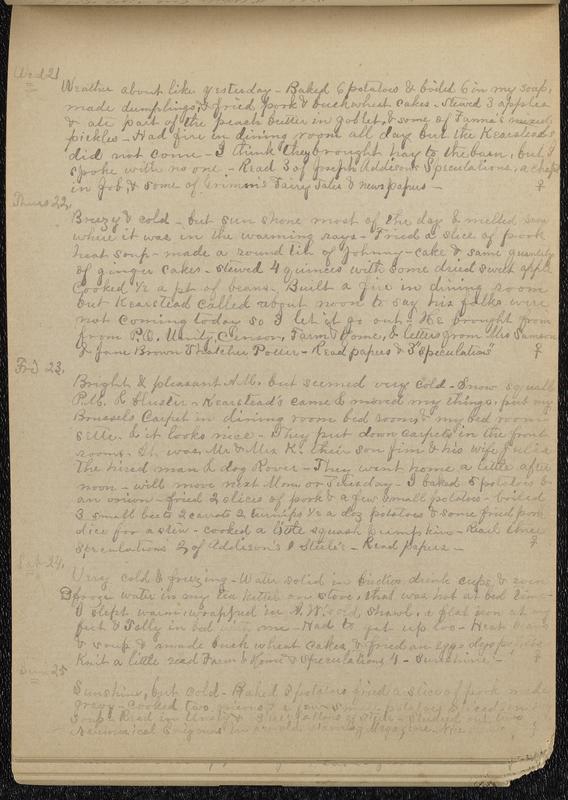 Wed 21
Weather about like yesterday - Baked 6 potatoes & boiled 6 in my soap,
made dumplings, & fried pork & buckwheat cakes - stewed 3 apples
& ate part of the peach butter in goblet, & some of Fannie's mixed
pickles - Had fire in dining room all day but the Kearsteads
did not come - I think they brought hay to the barn, but I
spoke with no one - Read 3 of Joseph Addison's Speculations, a chapt
in Job, & some of Grimm's Fairy Tales & newspapers -
Thurs 22
Breezy & cold - but sun shone most of the day & melted snow
where it was in the warming rays - Fried a slice of pork
heat soup - made a round tin of Johnny-cake & same quantity
of ginger cakes - stewed 4 quinces with some dried sweet apple
Cooked 1/2 a pt of beans. Built a fire in dining room
but Kearstead called about noon to say his folks were
not coming today so I let it go out - He brought from
from P.O. Unity, Censor, Farm & Home, & letters from Mrs Samson
& Jane Brown Thatcher Potter - Read papers & 3 "Speculations"
Frid 23.
Bright & pleasant A.M. but seemed very cold - Snow squalls
P.M. & bluster - Kearstead's came & moved my things, put my
Brussels Carpet in dining room bed room, & my bed room
settee & it looks nice - They put down carpets in the front
rooms. It was Mr & Mrs K. their son Jim & his wife,
the hired man & dog Rover - They went home a little after
noon - will move next Mon or Tuesday - I baked 5 potatoes &
an onion - fried 2 slices of pork & a few small potatoes - boiled
3 small beets 2 carrots 2 turnips 1/2 a doz potatoes & some fried pork
dice for a stew - cooked a little squash pumpkin - Read three
Speculations 2 of Addison's 1 Steele's - Read papers -
Sat 24.
Very cold & freezing - Water solid in drink cups, & even
froze water in my tea kettle on stove, that was hot at bed time -
I slept warm, wrapped in shawl, & flat iron at
feet & Telly in bed with me - Had to get up too - Heat beans
& soup & made buck wheat cakes, & fried an egg
Knit a little read Farm & Home & Speculations 4 - Sunshine -
Sun 25
Sunshine, but cold - Baked 3 potatoes fried a slice of pork made
gravy - cooked two onions & a few small potatoes
soup - Read in Unity & 3 of Steele - Studied out two
Numerical Enigmas in an old Magazine